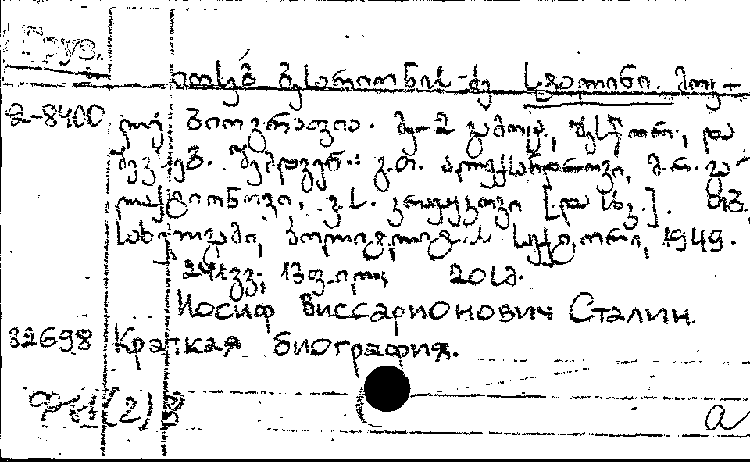 Груз.
იოსებ ბესარიონის-ძე სტალინი. მოკ-
2-8400 ლე ბიოგრაფია. მე-2 გამოც., შესწორ., და
შევსებ. შემდგენ.: გ.თ. ალექსანდროვი, მ.რ. გა-
ლაქტიონოვი, ვ.ს. კრუჟკოვი [და სხვ.]. თბ.,
სახელგამი, პოლიტლიტ-ის სექტორი, 1949.
241 გვ; 13 ფ. ილ. 20სმ.
Иосиф Виссарионович Сталин.
32698 Краткая биография.
ФИ(2)8
а